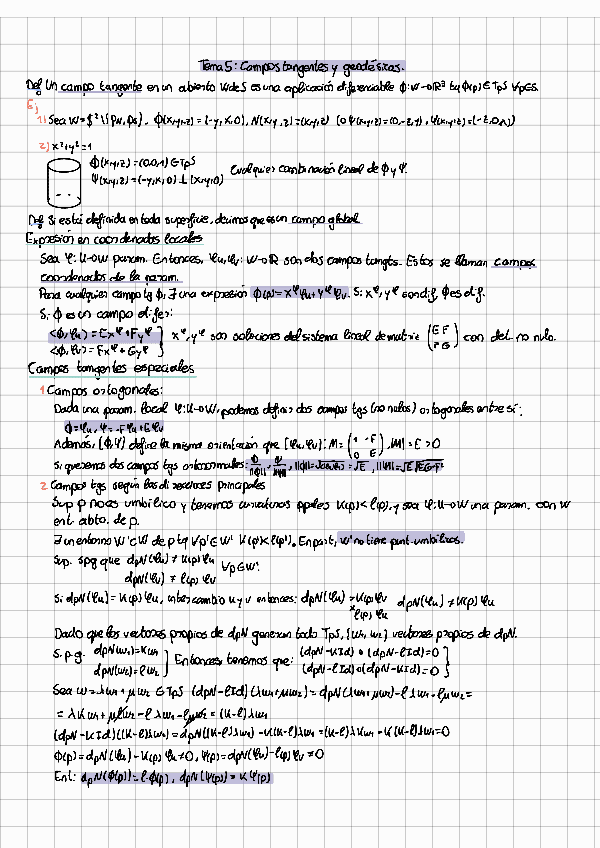 Tema 5: Campos tangentes y geodésicas.
Def Un campo tangente en un abierto W de S es una aplicación diferenciable ϕ: W→R³ tq ϕ(p) ∈ TpS ∀p∈S.
Ej
1) Sea W = S² \ {pN, pS}. ϕ(x,y,z) = (-y,x,0), N(x,y,z) = (x,y,z) (o ψ(x,y,z) =
2) x²+y²=1
ϕ(x,y,z) = (0,0,1) ∈ TpS
ψ(x,y,z) = (-y,x,0) ⊥ (x,y,0)
Cualquier combinación lineal de ϕ y ψ.
Def Si está definida en toda superficie, decimos que es un campo global
Expresión en coordenadas locales
Sea φ: U→W param. Entonces, φu, φv: W→R son dos campos tangts. Estos se llaman campos
coordenados de la param.
Para cualquier campo tg ϕ, ∃ una expresión ϕ(p) = x^φ φu + y^φ φv. Si x^φ, y^φ son dif, ϕ es dif.
Si ϕ es un campo difer:
<ϕ, φu> = E x^φ + F y^φ
<ϕ, φv> = F x^φ + G y^φ
} x^φ, y^φ son soluciones del sistema lineal de matriz (E F / F G) con det. no nulo.
Campos tangentes especiales
1 Campos ortogonales:
Dada una param. local φ: U→W, podemos definir dos campos tgs (no nulos) ortogonales entre sí:
ϕ = φu, ψ = -Fφu + Eφv
Además, {ϕ, ψ} define la misma orientación que {φu, φv}: M = (1 -F / 0 E), |M| = E > 0
Si queremos dos campos tgs ortonormales: ϕ/||ϕ||, ψ/||ψ||, ||ϕ|| = √E, ||ψ|| = √E √EG-F²
2. Campos tgs según las direcciones principales
Sup p no es umbílico y tenemos curvaturas ppales K(p) < l(p), y sea φ: U→W una param. con W
ent. abto. de p.
∃ un entorno W' ⊂ W de p tq ∀p' ∈ W' K(p') < l(p'). En part, W' no tiene punt. umbílicos.
Sup. spg que dpN(φu) ≠ K(p) φu
dpN(φv) ≠ l(p) φv
∀p ∈ W'
Si dpN(φu) = K(p) φu, intercambio u y v entonces: dpN(φv) ≠ K(p) φv
l(p) φu
dpN(φu) ≠ K(p) φu
Dado que los vectores propios de dpN generan todo TpS, {w1, w2} vectores propios de dpN.
S.p.g. dpN(w1) = K w1
dpN(w2) = l w2
} Entonces tenemos que: (dpN - K Id) ∘ (dpN - l Id) = 0
(dpN - l Id) ∘ (dpN - K Id) = 0 }
Sea w = λw1 + μw2 ∈ TpS (dpN - l Id)(λw1 + μw2) = dpN(λw1 + μw2) - lλw1 - lμw2 =
= λKw1 + μlw2 - lλw1 - lμw2 = (K-l)λw1
(dpN - K Id)((K-l)λw1) = dpN((K-l)λw1) - K(K-l)λw1 = (K-l)λKw1 - K(K-l)λw1 = 0
ϕ(p) = dpN(φu) - K(p) φu ≠ 0, ψ(p) = dpN(φv) - l(p) φv ≠ 0
Ent: dpN(ϕ(p)) = l·ϕ(p), dpN(ψ(p)) = K ψ(p)